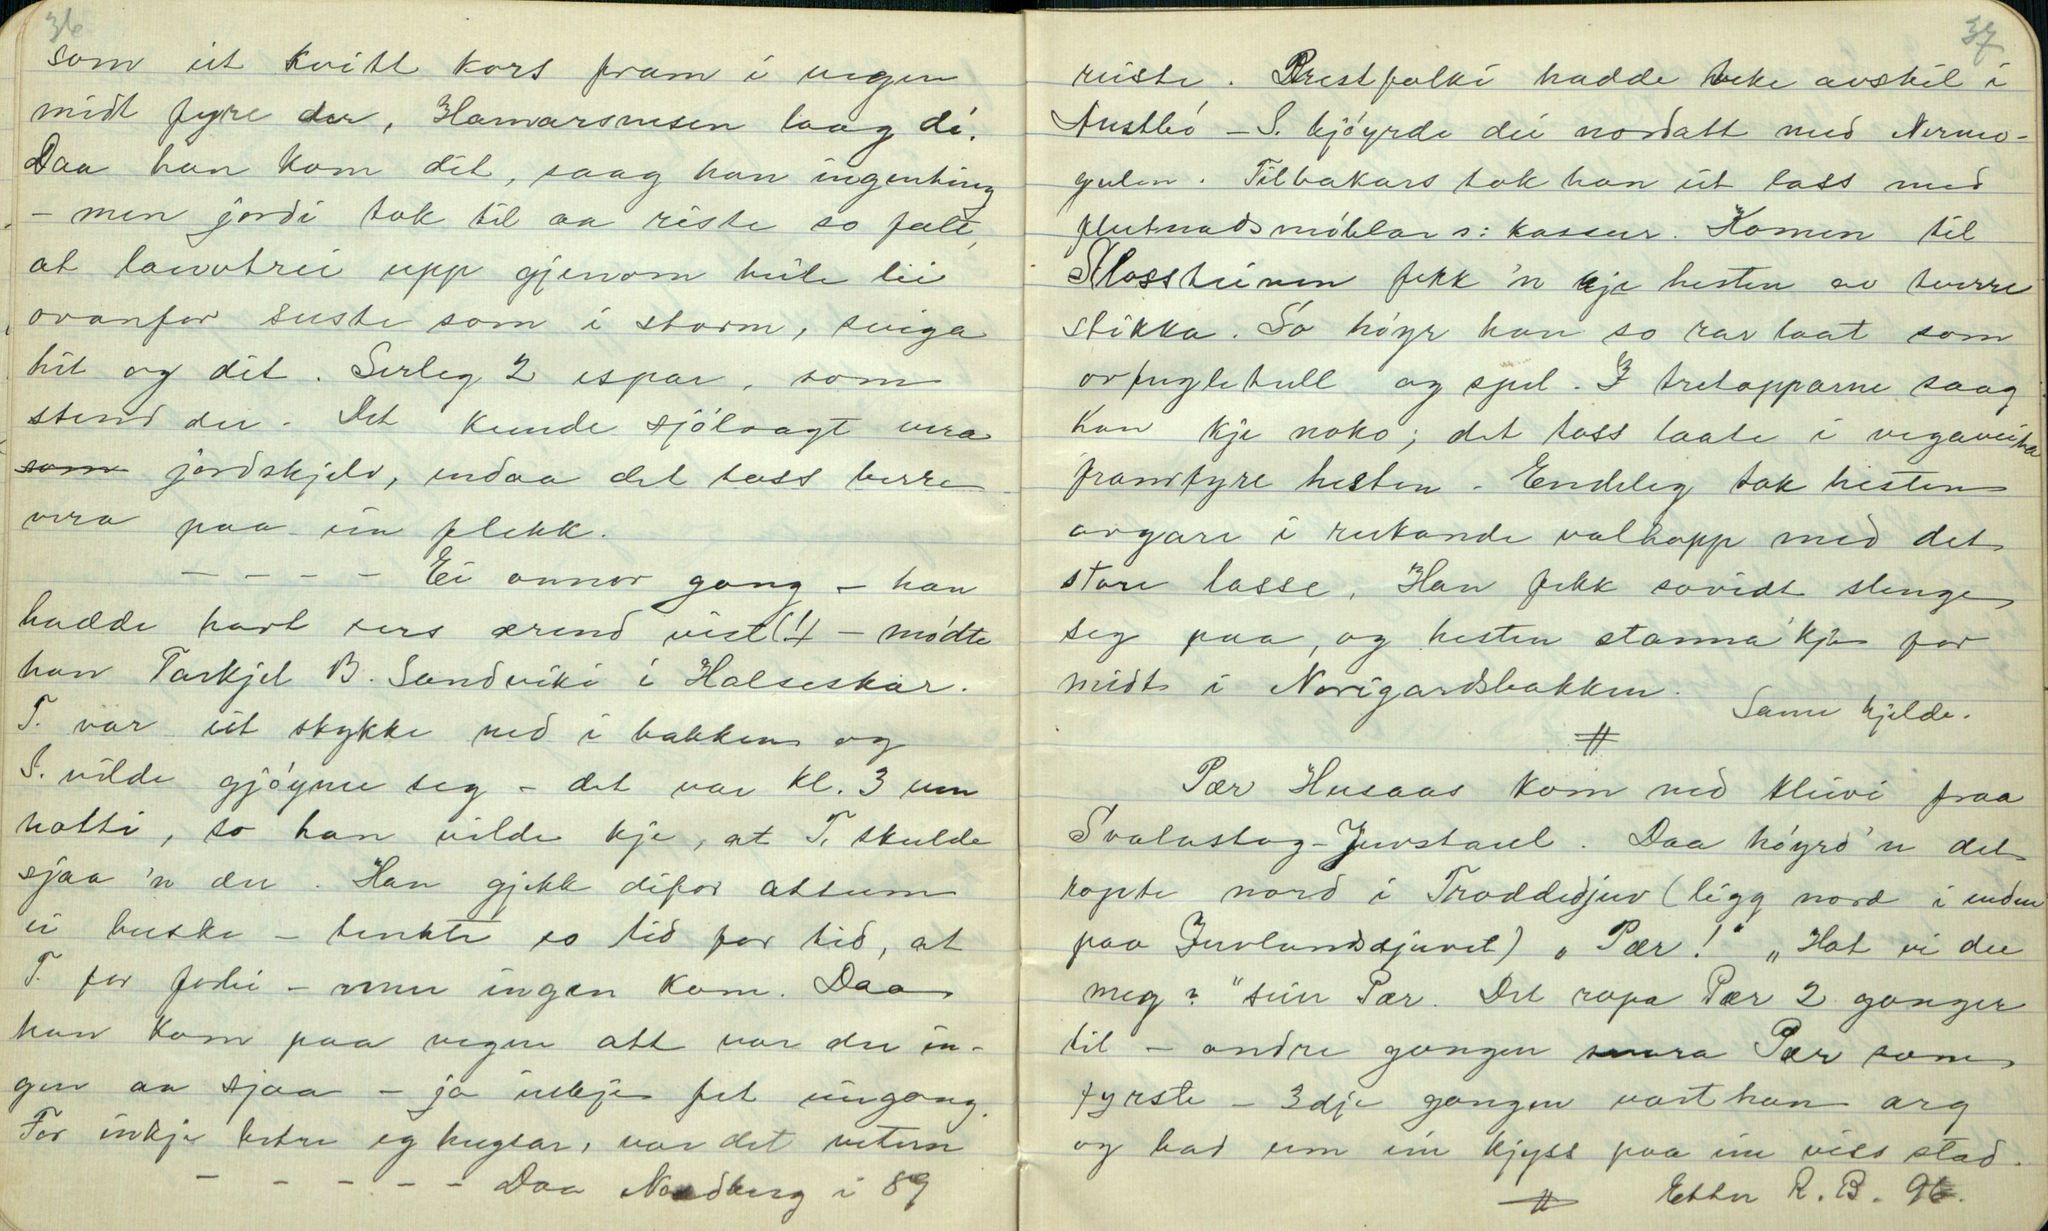 36
som eit kvitt kors fram i vegen
midt fyre der, Hamarsnesen laag dé.
Daa han kom dit, saag han ingenting
– men jordi tok til aa riste so fælt,
at lauvtrei upp gjenom heile lii
ovanfor suste som i storm, sviga
hit og dit. Serleg 2 espar, som
stend der. Det kunde sjölvagt vera
som jordskjelv, endaa det tass berre
vera paa ein flekk.
– – – – Ei annor gong – han
hadde havt sers ærend vist (!) – mödte
han Tarkjel B. Sandviki i Halseskar.
T. var eit stykke ned i bakken og
S. vilde gjöyme seg – det var kl. 3 um
notti, so han vilde kje, at T. skulde
sjaa 'n der. Han gjekk difor attum
ei buske – tenkte so tid for tid, at
T. for forbi – men ingen kom. Daa
han kom paa vegen att var der in-
gen aa sjaa – ja ikkje fet eingong.
For inkje betre eg hugsar, var det vetern
– – – – – Daa Nordberg i 89
37
reiste. Prestfolki hadde avskil i
Austbö – S. kjöyrde dei nordatt med Nermo-
gulen. Tilbakars tok han eit lass med
flutnadsmöblar o: kassur. Komen til
Slossteinen fekk 'n kje hesten av tverre
stikka. So höyr han so rar laat som
av fugletull og spel. I tretopparne saag
han kje noko; det tass laate i vegaveita
framfyre hesten. Endeleg tok hesten
avgare i rukande valhopp med det
store lasse. Han fekk sovidt slenge
seg paa, og hesten stanna' kje for
midt i Norigardsbakken.
Same kjelde.
#
Pær Husaas kom med kleivi fraa
Svalastog-Juvstaul. Daa höyrd 'n det
ropte nord i Troddedjuv (ligg nord i enden
paa Juvlandsdjuvet) „Pær!" „Hot vi du
meg?" sein Pær. Det ropa Pær 2 gonger
til – andre gongen svara Pær som
fyrste – 3dje gongen vart han arg
og bad um ein kjyss paa ein viss stad.
# Etter R. B. 96.